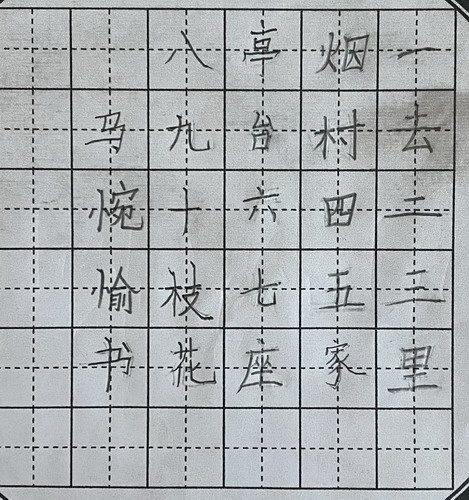 一去二三里
烟村四五家
亭台六七座
八九十枝花
鸟惋愉书